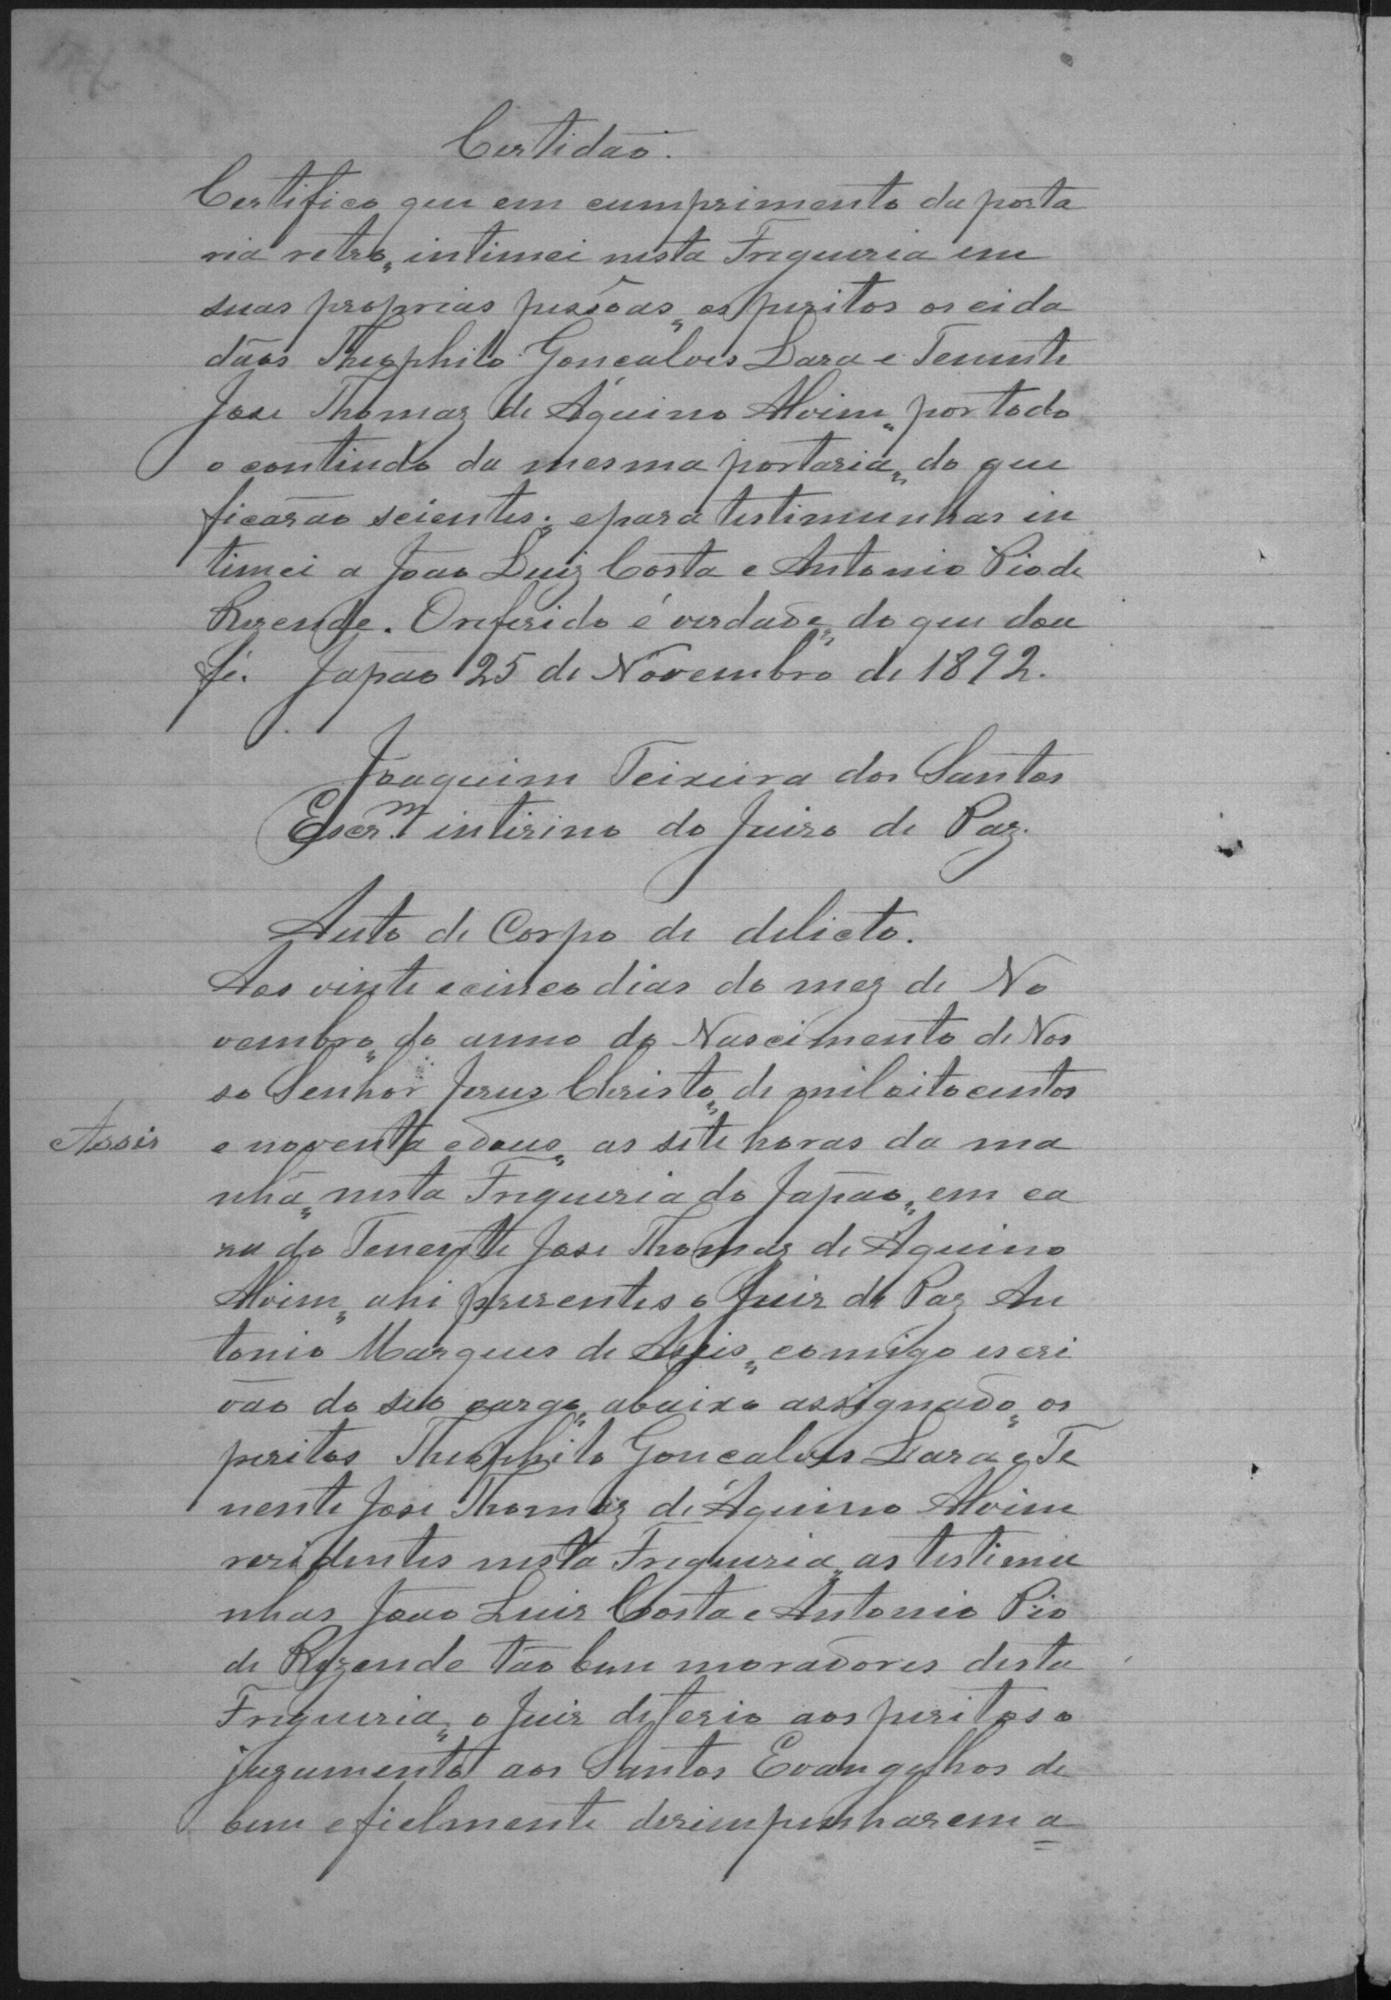 Certidão.
Certifico que em cumprimento da porta
ria retro, intimei nesta Fregueria em
suas proprias pessôas, os peritos os cida
dãos Theophilo Gonçalves Lara e Tenente
Jose Thomaz de Aquino Alvim, por todo
o contiudo da mesma portaria, do que
ficarão scientes; e para testimunhas in
timei a João Luiz Costa e Antonio Pio de
Rezende. O referido é verdade, do que dou
fé. Japão 25 de Novembro de 1892.
Joaquim Teixeira dos Santos
Escr.m intirino do Juiso de Paz.
Auto de Corpo de delicto.
Aos vinte e cinco dias do mez de No
vembro, do anno do Nascimento de Nos
so Senhor Jesus Christo, de mil oitocentos
Assis
e noventa e dous, as sete horas da ma
nhã, nesta Fregueria do Japão, em ca
sa do Tenente Jose Thomaz de Aquino
Alvim, ahi presentes o Juis de Paz An
tonio Marques de Assis, comigo escri
vão do seo cargo, abaixo assignado, os
peritos Theophilo Goncalves Lara e Te
nente Jose Thomaz de Aquino Alvim
residentes nesta Fregueria, as testimu
nhas João Luis Costa e Antonio Pio
de Rezende tão bem moradores desta
Fregueria, o Juis deferio aos peritos o
juramento aos Santos Evangelhos de
bem e fielmente desimpenharem a